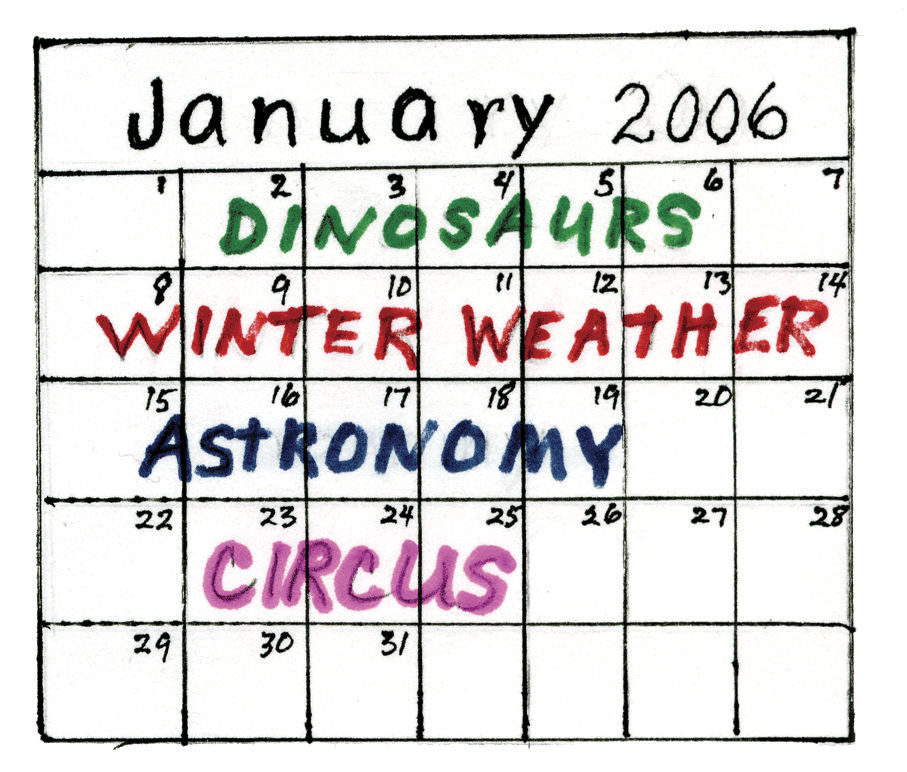 January 2006
1 2 3 4 5 6 7
DINOSAURS
8 9 10 11 12 13 14
WINTER WEATHER
15 16 17 18 19 20 21
ASTRONOMY
22 23 24 25 26 27 28
CIRCUS
29 30 31